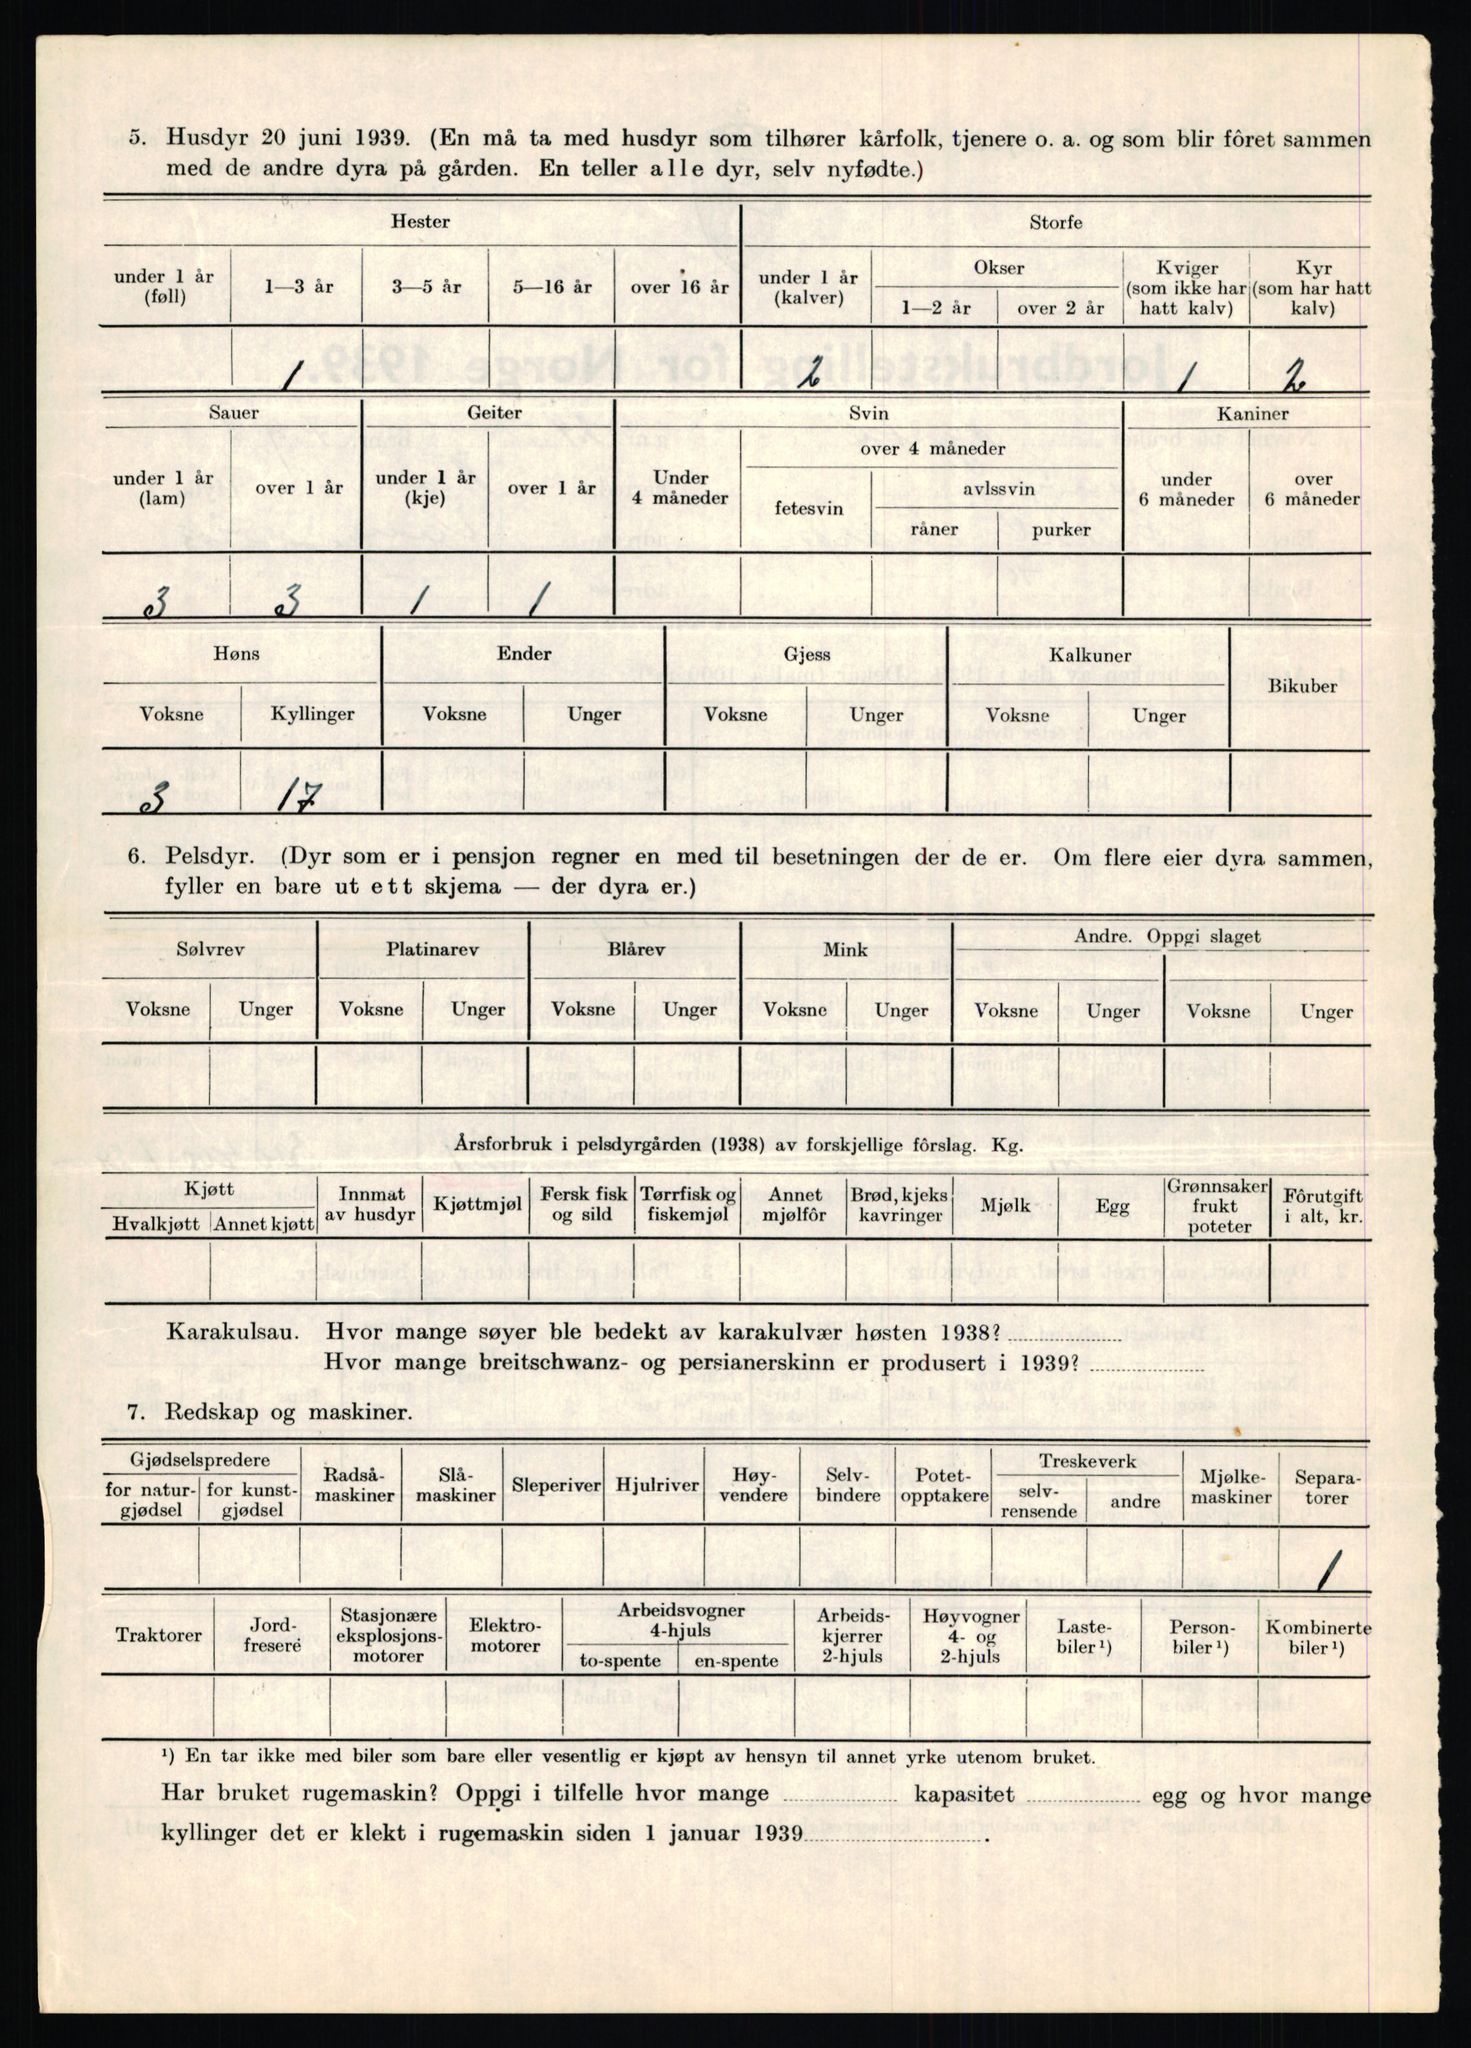 5. Husdyr 20 juni 1939. (En må ta med husdyr som tilhører kårfolk, tjenere o. a. og som blir fôret sammen
med de andre dyra på gården. En teller alle dyr, selv nyfødte.)
Hester Storfe
under 1 år (føll) 1—3 år 3—5 år 5—16 år over 16 år under 1 år (kalver) Okser 1—2 år over 2 år Kviger (som ikke har hatt kalv) Kyr (som har hatt kalv)
1 2 1 2
Sauer Geiter Svin Kaniner
under 1 år (lam) over 1 år under 1 år (kje) over 1 år Under 4 måneder over 4 måneder fetesvin avlssvin råner purker under 6 måneder over 6 måneder
3 3 1 1
Høns Ender Gjess Kalkuner Bikuber
Voksne Kyllinger Voksne Unger Voksne Unger Voksne Unger
3 17
6. Pelsdyr. (Dyr som er i pensjon regner en med til besetningen der de er. Om flere eier dyra sammen,
fyller en bare ut ett skjema — der dyra er.)
Sølvrev Platinarev Blårev Mink Andre. Oppgi slaget
Voksne Unger Voksne Unger Voksne Unger Voksne Unger Voksne Unger Voksne Unger
Årsforbruk i pelsdyrgården (1938) av forskjellige fôrslag. Kg.
Kjøtt Hvalkjøtt Annet kjøtt Innmat av husdyr Kjøttmjøl Fersk fisk og sild Tørrfisk og fiskemjøl Annet mjølfôr Brød, kjeks kavringer Mjølk Egg Grønnsaker frukt poteter Fôrutgift i alt, kr.
Karakulsau. Hvor mange søyer ble bedekt av karakulvær høsten 1938?
Hvor mange breitschwanz- og persianerskinn er produsert i 1939?
7. Redskap og maskiner.
Gjødselspredere for naturgjødsel for kunstgjødsel Radsåmaskiner Slåmaskiner Sleperiver Hjulriver Høyvendere Selvbindere Potetopptakere Treskeverk selvrensende andre Mjølkemaskiner Separatorer
1
Traktorer Jordfresere Stasjonære eksplosjonsmotorer Elektromotorer Arbeidsvogner 4-hjuls to-spente en-spente Arbeidskjerrer 2-hjuls Høyvogner 4- og 2-hjuls Lastebiler ¹) Personbiler ¹) Kombinerte biler ¹)
¹) En tar ikke med biler som bare eller vesentlig er kjøpt av hensyn til annet yrke utenom bruket.
Har bruket rugemaskin? Oppgi i tilfelle hvor mange kapasitet egg og hvor mange
kyllinger det er klekt i rugemaskin siden 1 januar 1939 .